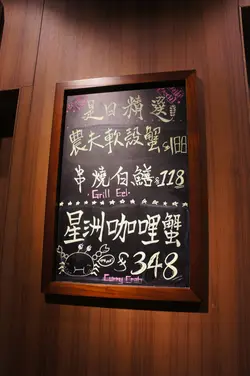 是日精選
農夫軟殼蟹 $188
串燒白鱔 $118
Grill Eel
星洲咖哩蟹
$348
Curry Crab